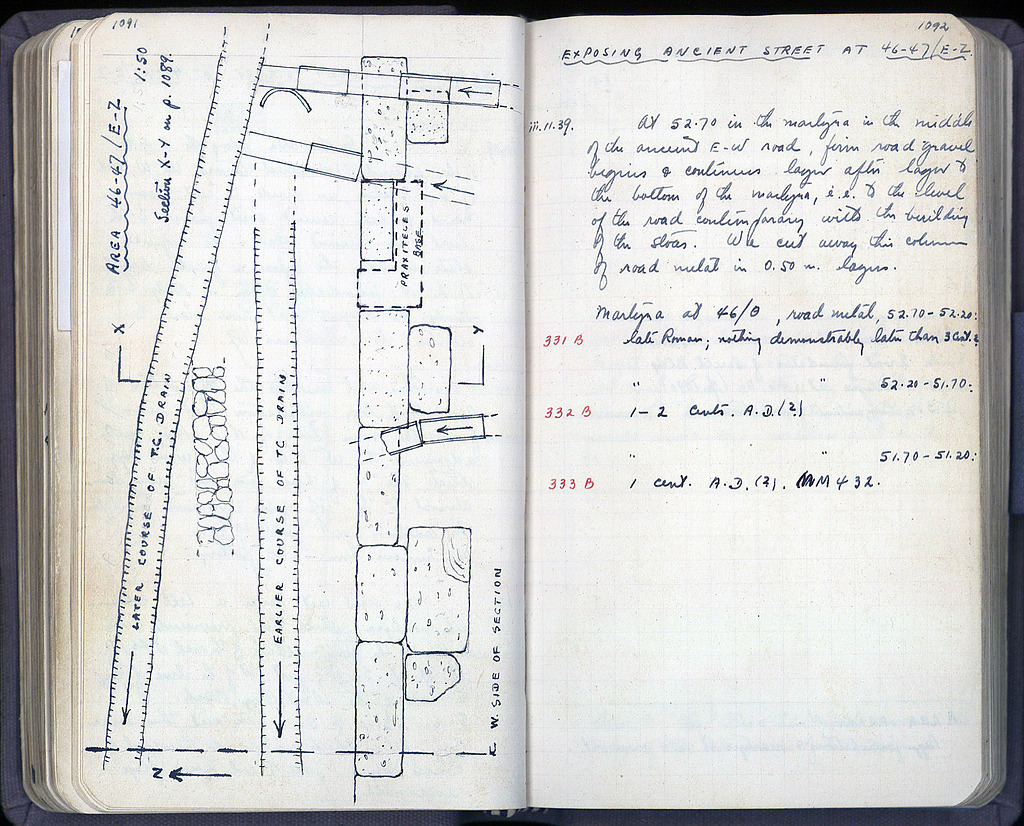 1091
AREA 46-47/E-Z
1:50
Section X-Y on p. 1089.
X
Y
PRAXITELES
BASE
LATER COURSE OF T.C. DRAIN
EARLIER COURSE OF T.C. DRAIN
W. SIDE OF SECTION
N
1092
EXPOSING ANCIENT STREET AT 46-47/E-Z
iii.11.39.
At 52.70 in the martyra in the middle
of the ancient E-W road, firm road gravel
begins & continues layer after layer to
the bottom of the martyra, i.e. to the level
of the road contemporary with the building
of the stoas. We cut away this column
of road metal in 0.50 m. layers.
Martyra at 46/Θ, road metal, 52.70-52.20:
331 B late Roman; nothing demonstrably later than 3 Cent.?
" " 52.20-51.70:
332 B 1-2 cents. A.D.(?)
" " 51.70-51.20:
333 B 1 cent. A.D.(?). MM 432.